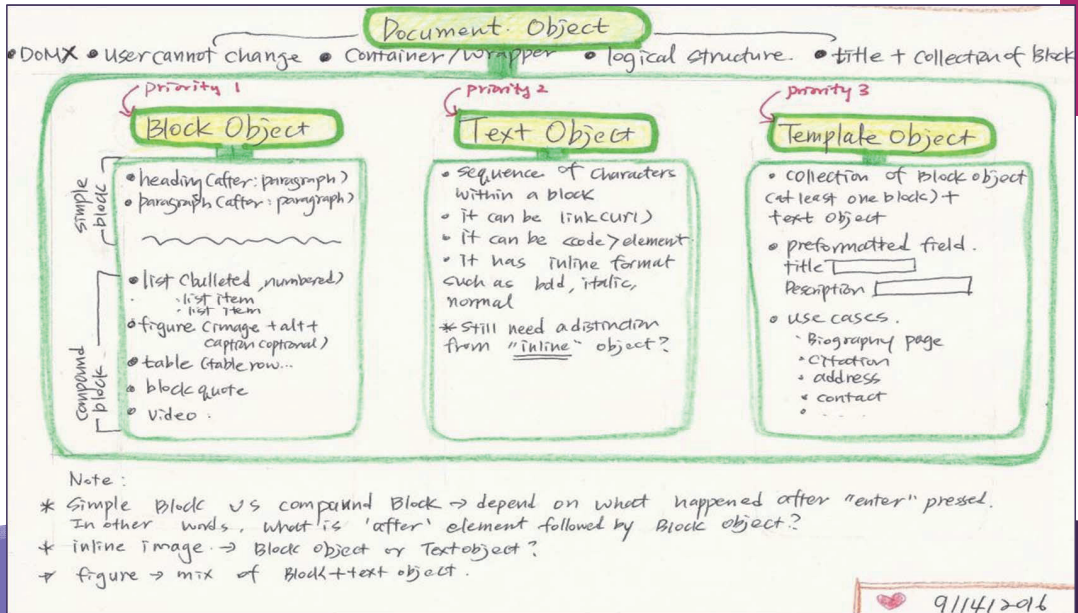 Document Object
• DOMX • user cannot change • Container/wrapper • logical structure. • title + collection of Block
priority 1
Block Object
simple block
• heading (after: paragraph)
• paragraph (after: paragraph)
compound block
• list (bulleted, numbered)
· list item
· list item
• figure (image + alt +
caption optional)
• table (table row...
• block quote
• video.
priority 2
Text Object
• sequence of characters
within a block
• it can be link (url)
• it can be <code> element
• it has inline format
such as bold, italic,
normal
* still need a distinction
from "inline" object?
priority 3
Template Object
• collection of Block object
(at least one block) +
text object
• preformatted field.
title
Description
• use cases.
· Biography page
· Citation
· address
· contact
· ....
Note:
* Simple Block vs compound Block → depend on what happened after "enter" pressed.
In other words, what is 'after' element followed by Block object?
* inline image → Block object or Text object?
* figure → mix of Block + text object.
9/14/2016